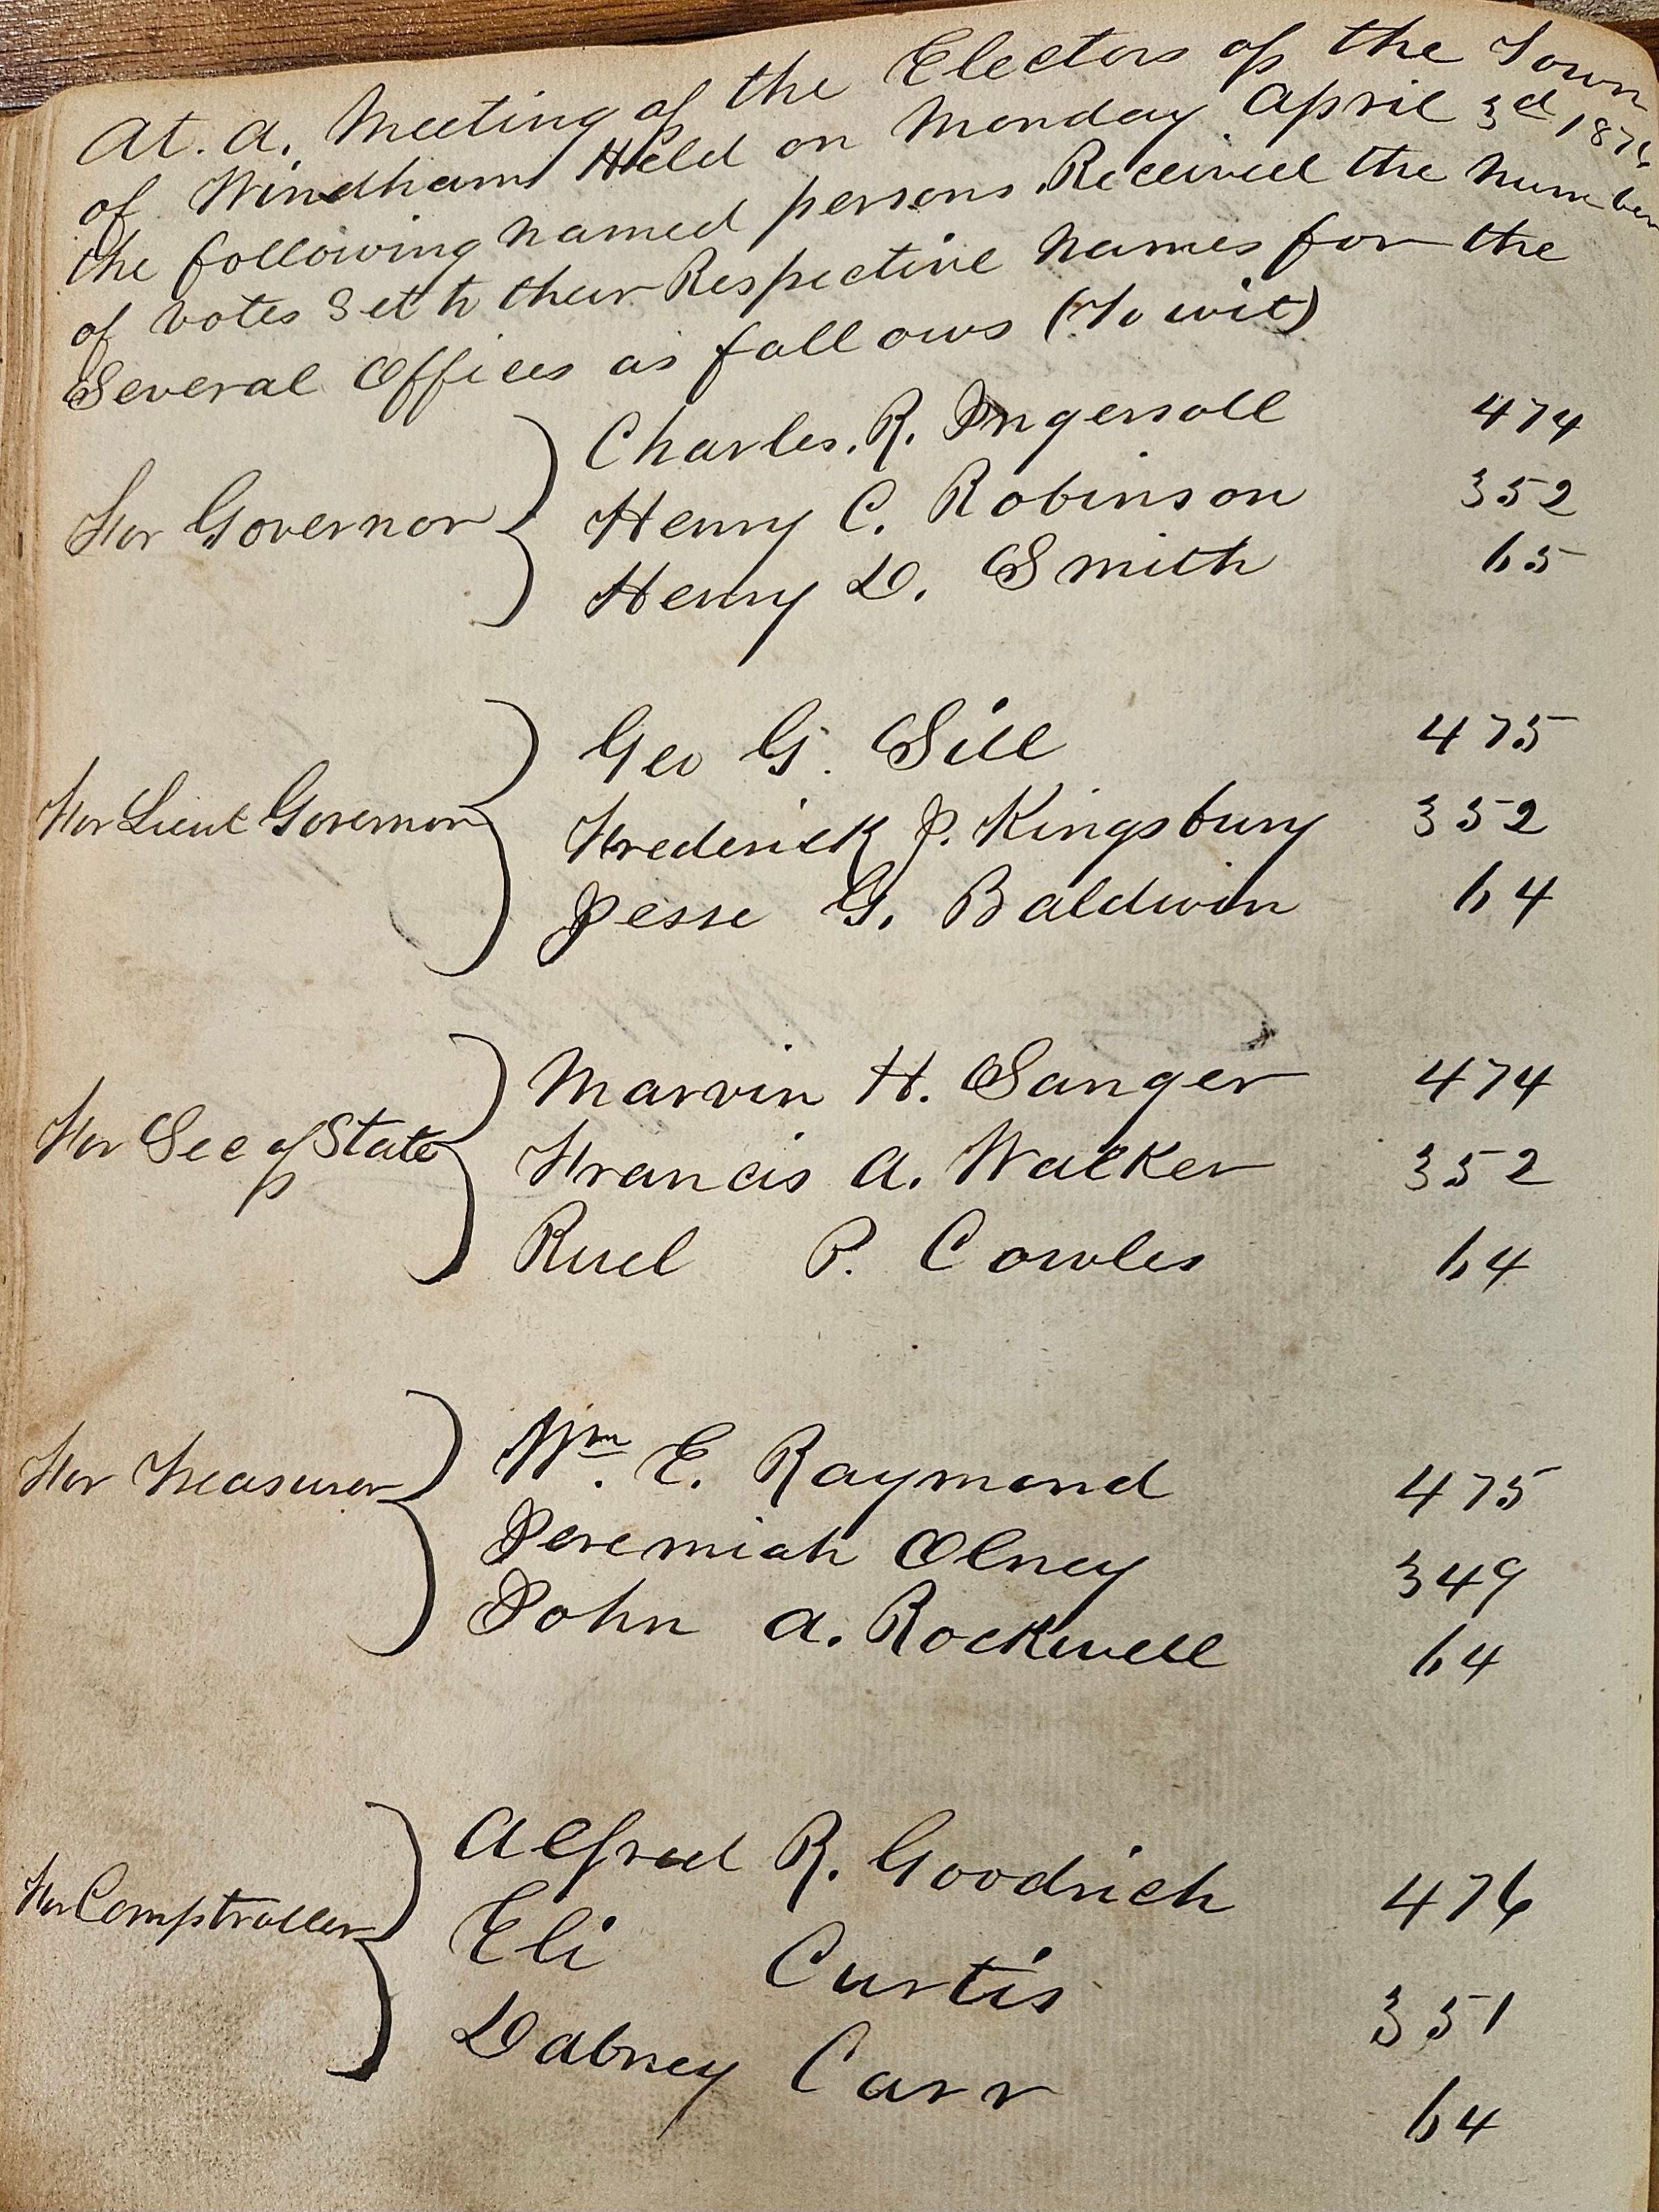 At. a. Meeting of the Electors of the Town
of Windham Held on Monday April 3d 1876
the following named persons Received the Number
of votes Set to their Respective Names for the
Several Offices as follows (To wit)
For Governor
Charles. R. Ingersoll 474
Henry C. Robinson 352
Henry D. Smith 65
For Lieut Governor
Geo G. Sill 475
Frederick J. Kingsbury 352
Jesse G. Baldwin 64
For Sec of State
Marvin H. Sanger 474
Francis A. Walker 352
Ruel P. Cowles 64
For Treasurer
Wm. E. Raymond 475
Jeremiah Olney 349
John A. Rockwell 64
For Comptroller
Alfred R. Goodrich 476
Eli Curtis 351
Dabney Carr 64